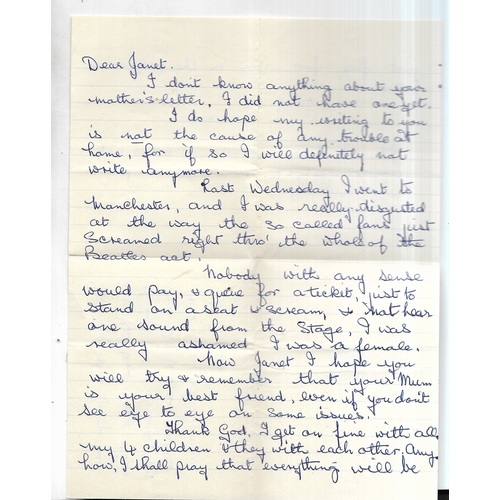 Dear Janet.
I don't know anything about your
mother's letter, I did not have one yet.
I do hope my writing to you
is not the cause of any trouble at
home, for if so I will definitely not
write anymore.
Last Wednesday I went to
Manchester, and I was really disgusted
at the way the so called fans just
screamed right thro' the whole of the
Beatles act.
Nobody with any sense
would pay, & queue for a ticket, just to
stand on a seat & scream, & not hear
one sound from the stage, I was
really ashamed I was a female.
Now Janet I hope you
will try & remember that your Mum
is your best friend, even if you don't
see eye to eye on some issues.
Thank God, I get on fine with all
my 4 children & they with each other. Any-
how, I shall pray that everything will be